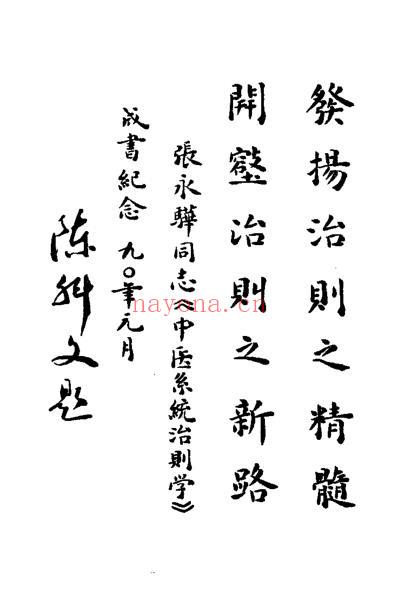 發揚治則之精髓
開壑治則之新路
張永驊同志《中医系統治則学》
成書紀念 九〇年元月
陈科文题
nayona.cn